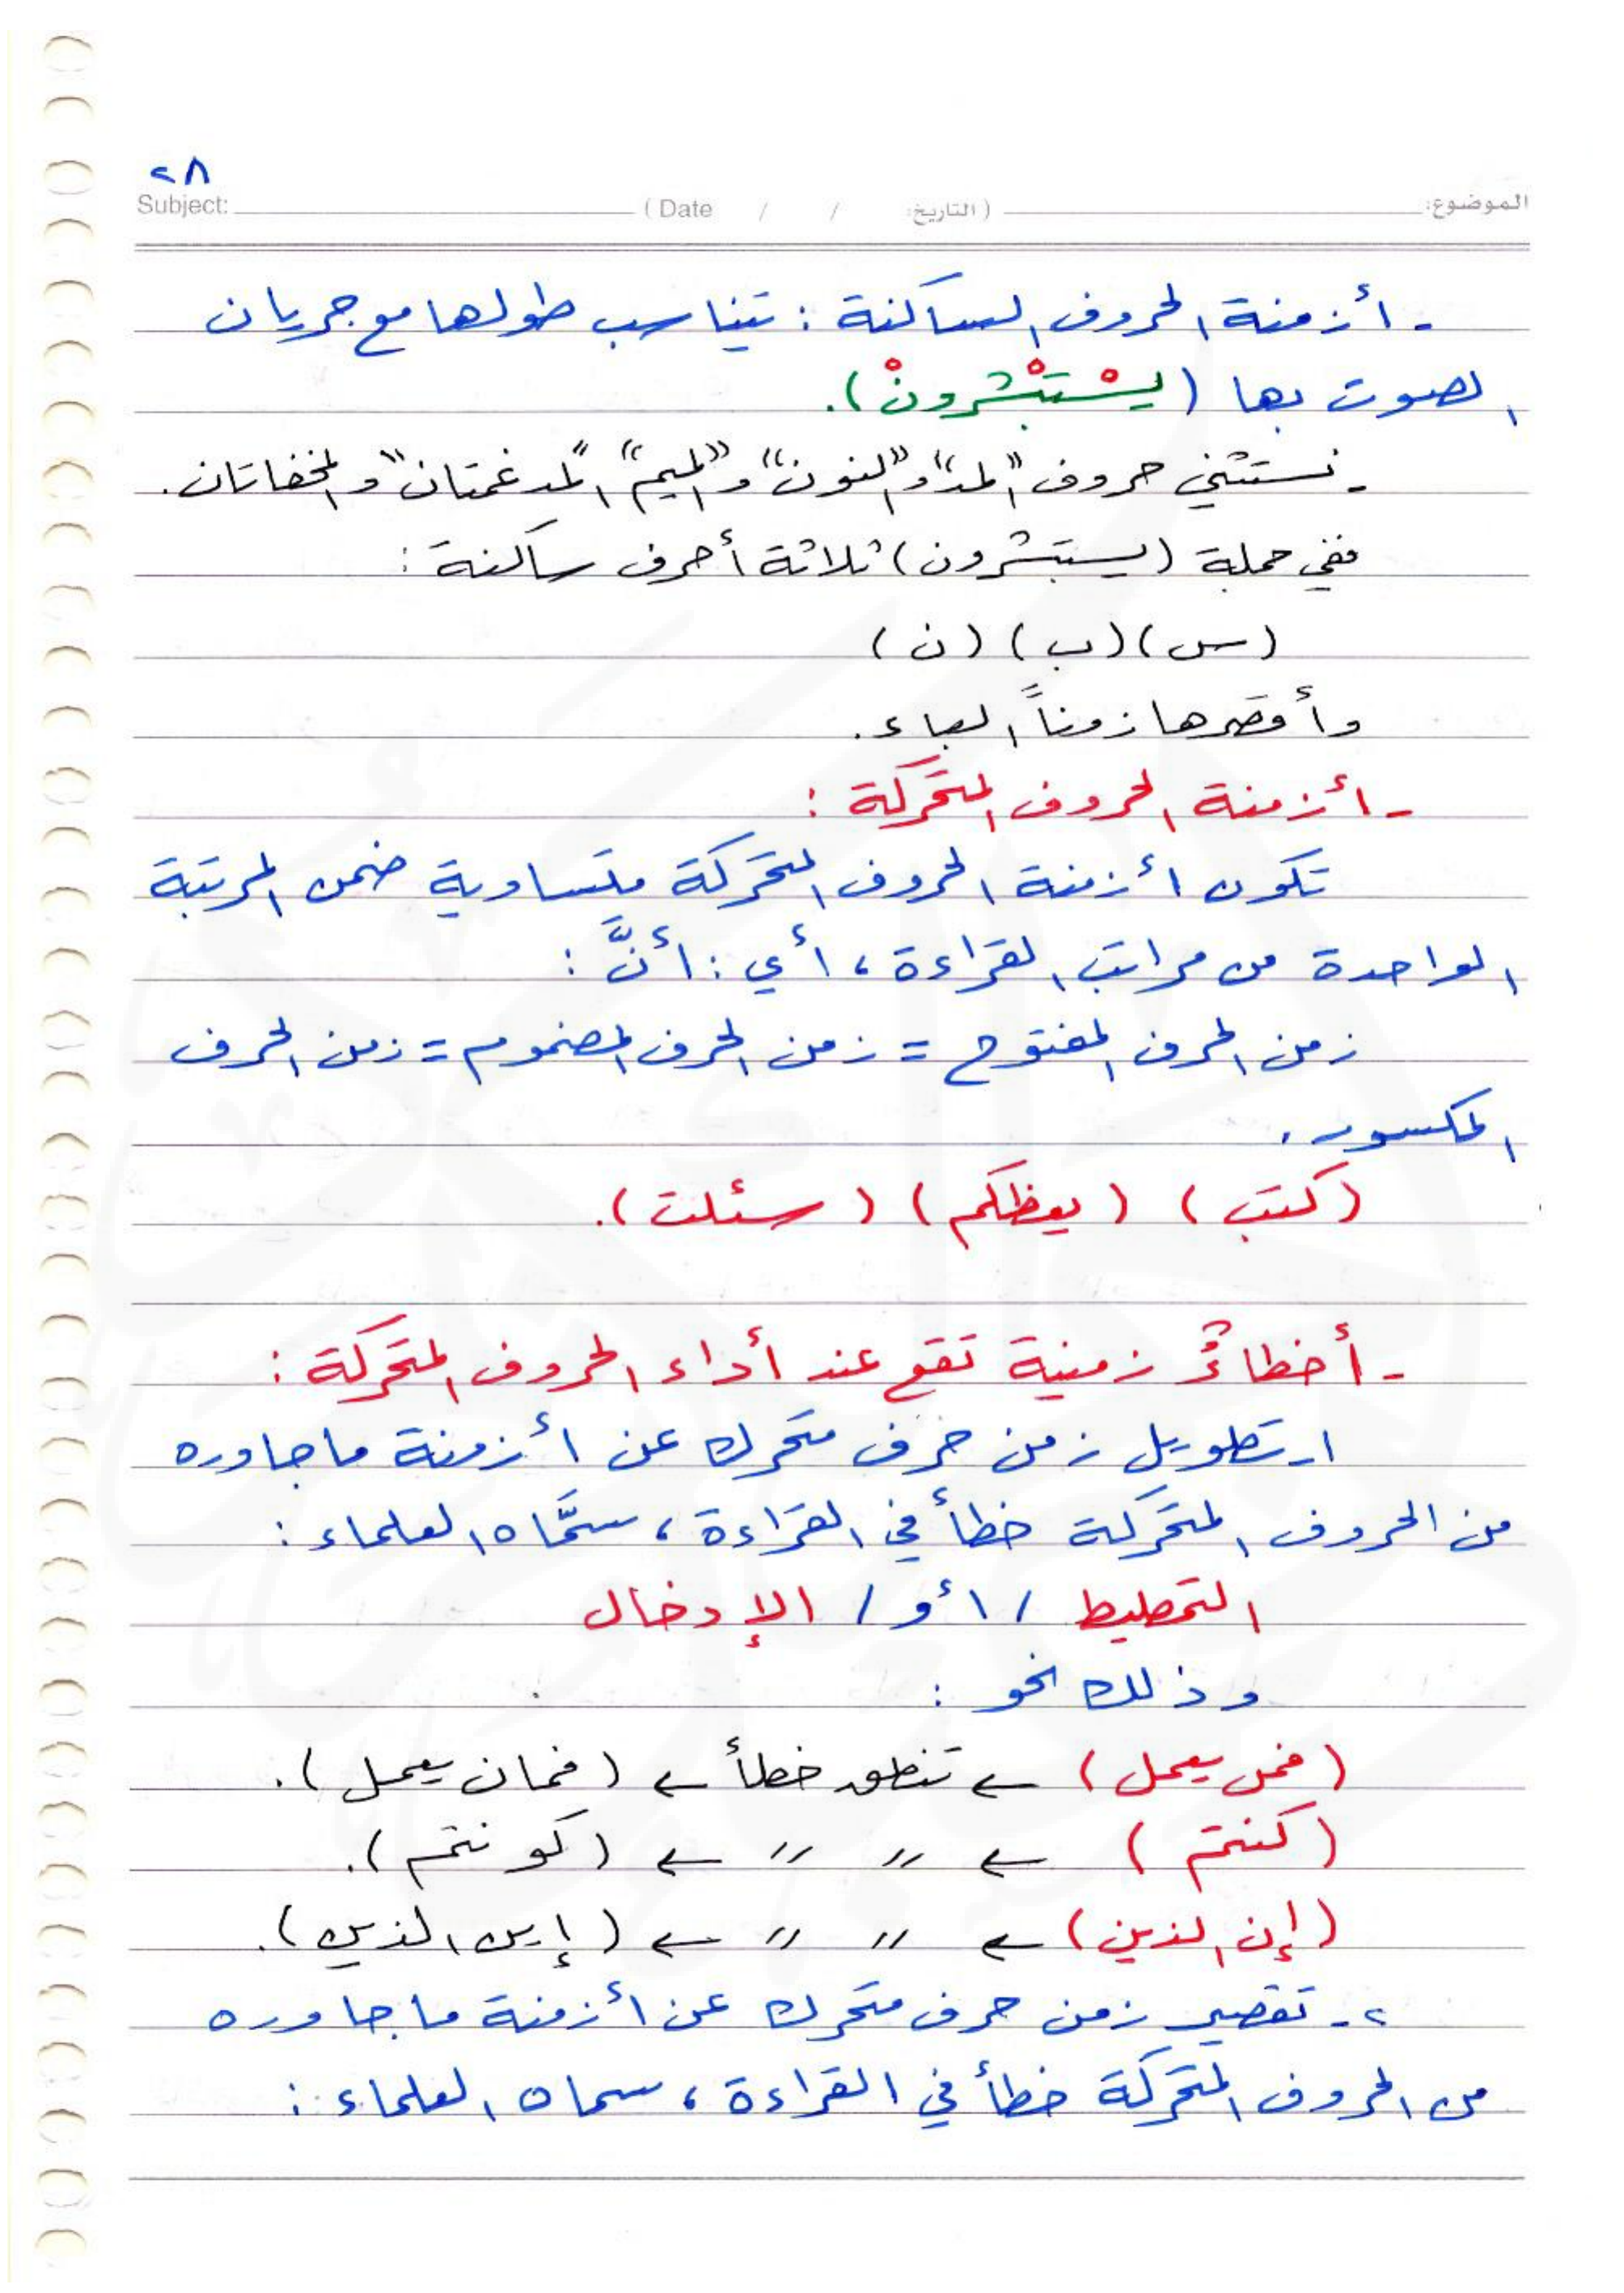 ٢٨
Subject: (Date / / التاريخ:) الموضوع:
- أزمنة الحروف الساكنة : تتناسب طولها مع جريان
الصوت بها (يسْتبْشرونْ).
- نستثني حروف "المد" و "النون" و "الميم" "المدغمتان" و المخفاتان.
ففي جملة (يستبشرون) ثلاثة أحرف ساكنة :
(س) (ب) (ن)
وأقصرها زمناً الباء.
- أزمنة الحروف المتحركة :
تكون أزمنة الحروف المتحركة متساوية ضمن المرتبة
الواحدة من مراتب القراءة ، أي : أنَّ :
زمن الحرف المفتوح = زمن الحرف المضموم = زمن الحرف
المكسور.
(كتب) (يعظكم) (سئلت).
- أخطاءٌ زمنية تقع عند أداء الحروف المتحركة :
١- تطويل زمن حرف متحرك عن أزمنة ما جاوره
من الحروف المتحركة خطأ في القراءة ، سمَّاه العلماء :
التمطيط / أو / الإدخال
وذلك نحو :
(فمن يعمل) ← تنطق خطأ ← (فمان يعمل).
(كنتم) ← 〃 〃 ← (كونتم).
(إن الذين) ← 〃 〃 ← (إين الذين).
٢- تقصير زمن حرف متحرك عن أزمنة ما جاوره
من الحروف المتحركة خطأ في القراءة ، سماه العلماء :